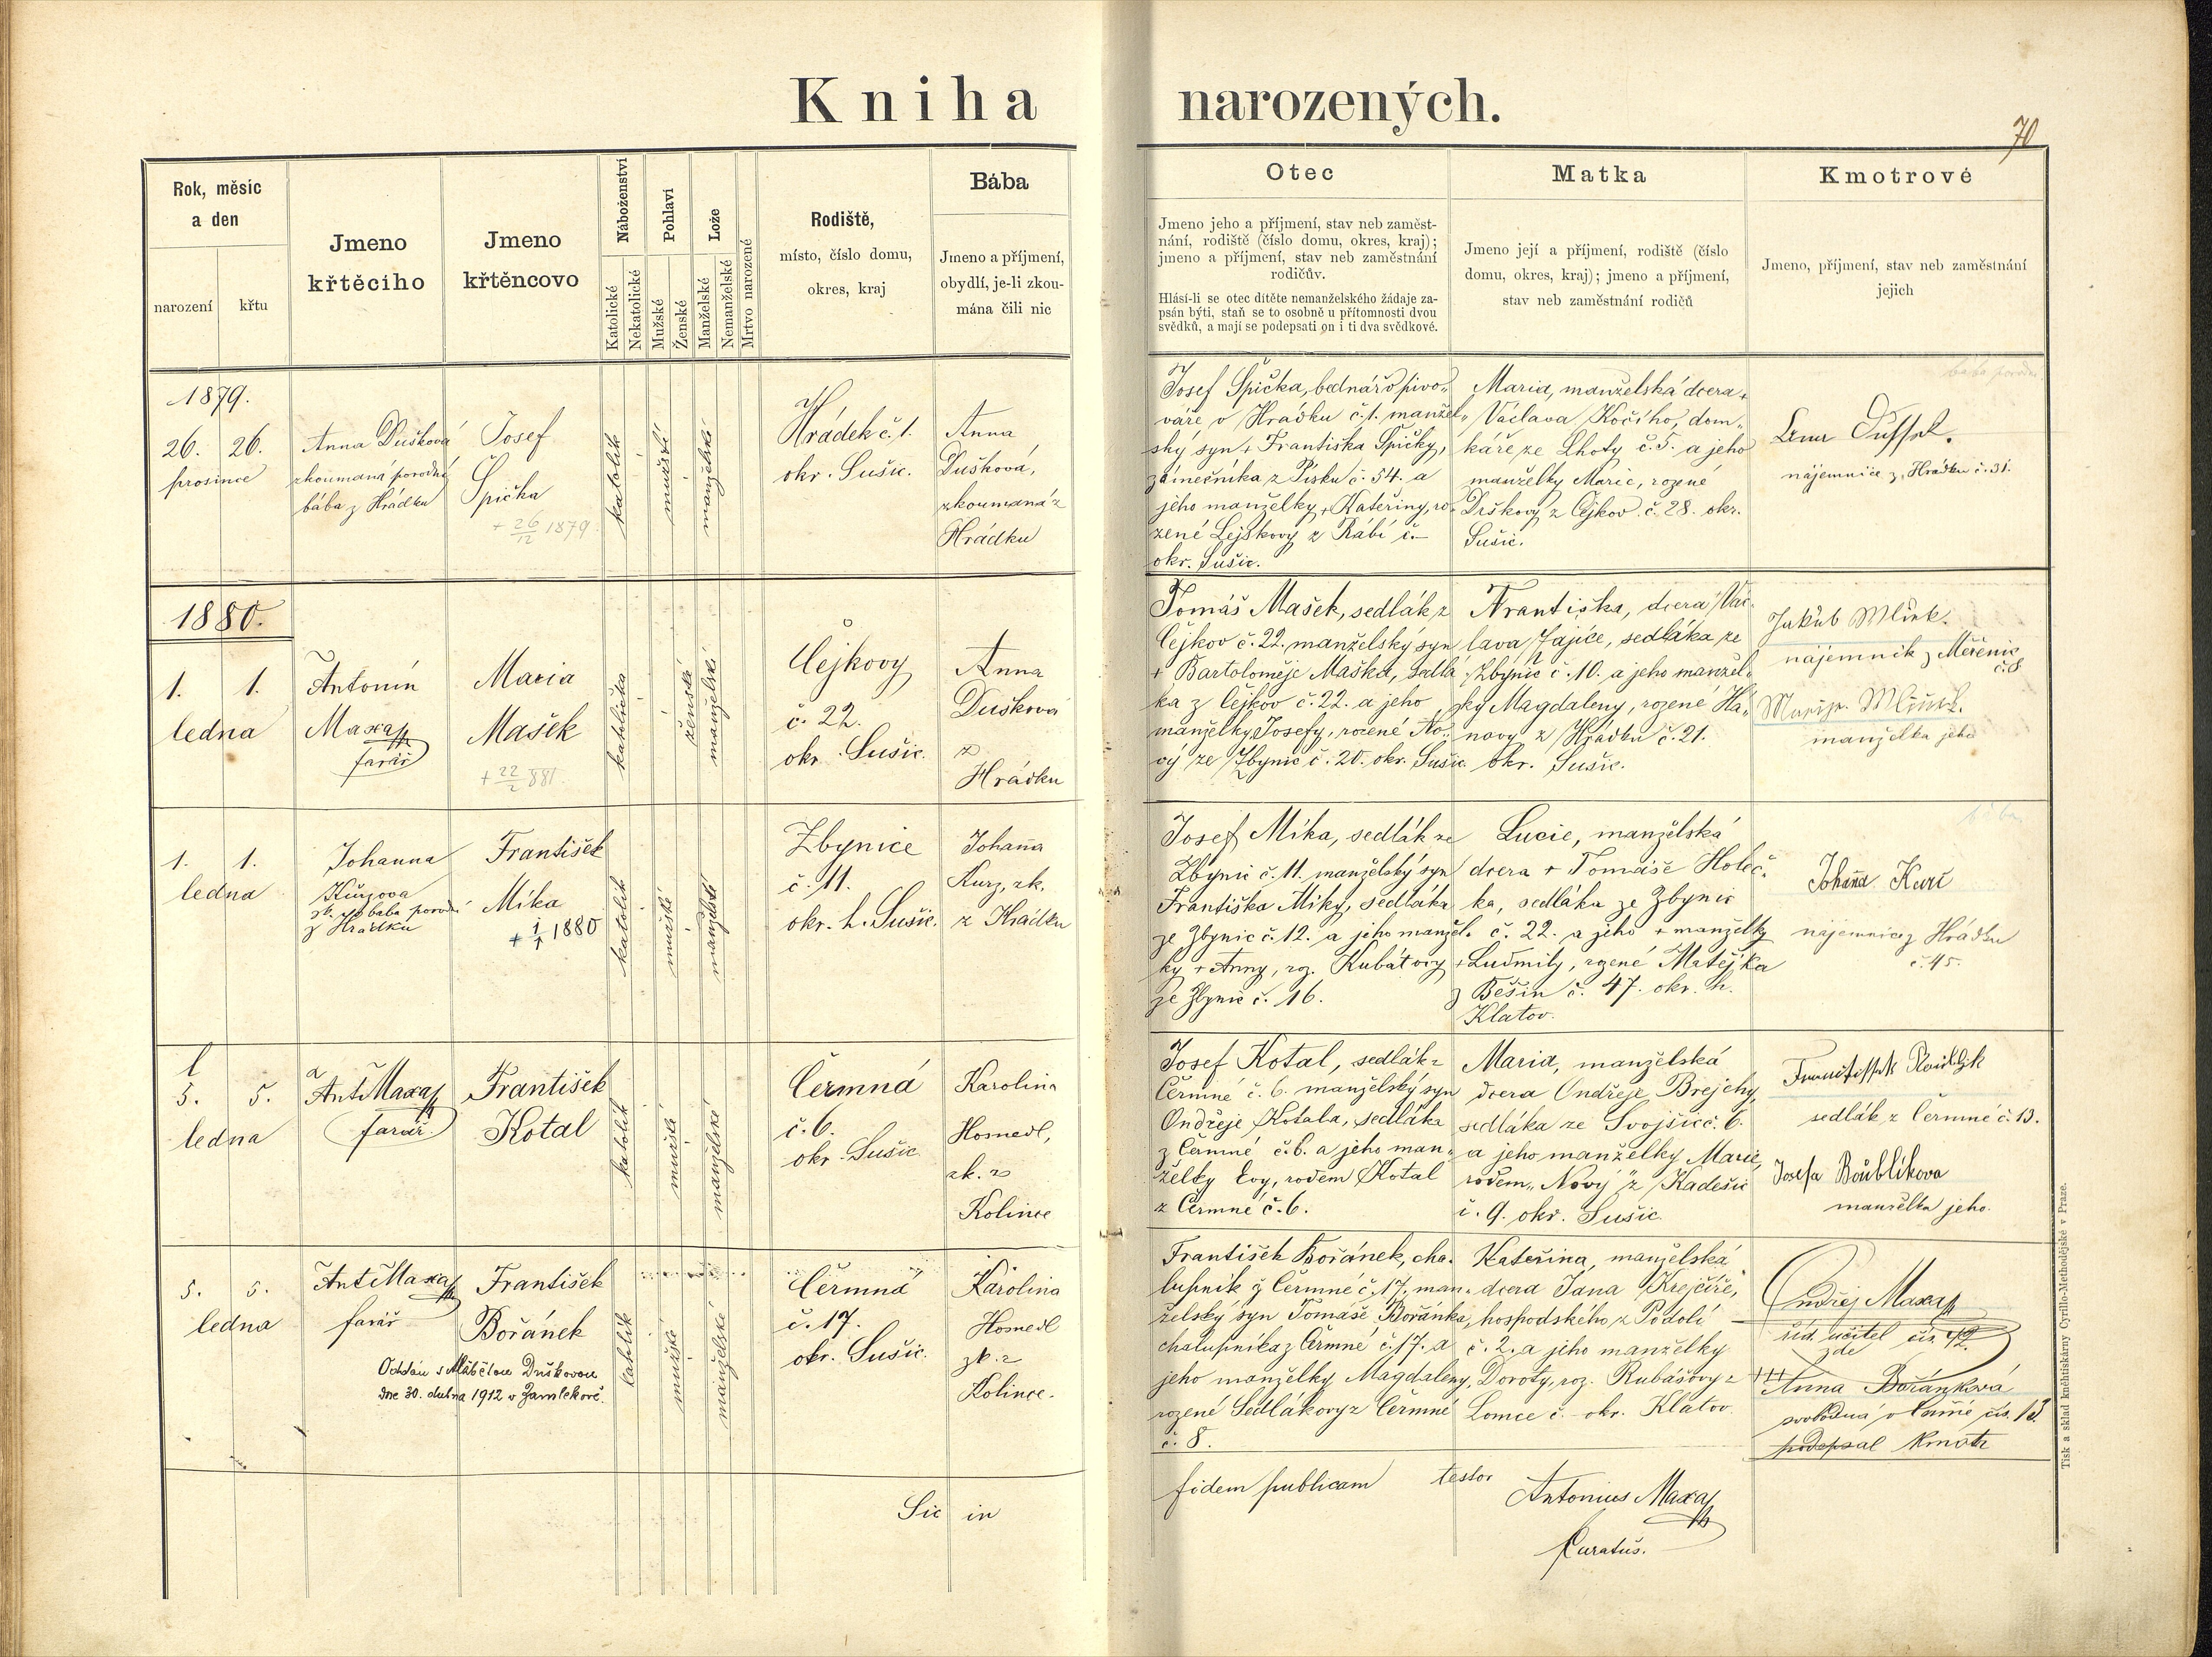 Kniha narozených.
70
Rok, měsíc
a den
narození
křtu
Jmeno
křtěcího
Jmeno
křtěncovo
Náboženství
Katolické
Nekatolické
Pohlaví
Mužské
Ženské
Lože
Manželské
Nemanželské
Mrtvo narozené
Rodiště,
místo, číslo domu,
okres, kraj
Bába
Jmeno a příjmení,
obydlí, je-li zkou-
mána čili nic
Otec
Jmeno jeho a příjmení, stav neb zaměst-
nání, rodiště (číslo domu, okres, kraj);
jmeno a příjmení, stav neb zaměstnání
rodičův.
Hlásí-li se otec dítěte nemanželského žádaje za-
psán býti, staň se to osobně u přítomnosti dvou
svědků, a mají se podepsati on i ti dva svědkové.
Matka
Jmeno její a příjmení, rodiště (číslo
domu, okres, kraj); jmeno a příjmení,
stav neb zaměstnání rodičů
Kmotrové
Jmeno, příjmení, stav neb zaměstnání
jejich
1879.
26. 26.
prosince
Anna Dušková
zkoumaná porodní
bába z Hrádku
Josef
Špička
+ 26/12 1879.
katolík
mužské
manželské
Hrádek č. 1.
okr. Sušic.
Anna
Dušková,
zkoumaná z
Hrádku
Josef Špička, bednář v pivo-
váře v Hrádku č. 1. manžel-
ský syn + Františka Špičky,
zámečníka z Písku č. 54. a
jeho manželky + Kateřiny, ro-
zené Lejskovy z Rábí č. –
okr. Sušic.
Maria, manželská dcera +
Václava Kočího, dom-
káře ze Lhoty č. 5. a jeho
manželky Marie, rozené
Drškovy z Čejkov č. 28. okr.
Sušic.
nájemnice z Hrádku č. 31.
1880.
1. 1.
ledna
Antonín
Maxa
farář
Maria
Mašek
+ 22/2 881.
katolička
ženská
manželské
Čejkovy
č. 22.
okr. Sušic.
Anna
Dušková
z
Hrádku
Tomáš Mašek, sedlák z
Čejkov č. 22. manželský syn
+ Bartoloměje Maška, sedlá-
ka z Čejkov č. 22. a jeho
manželky Josefy, rozené No-
vý ze Zbynic č. 20. okr. Sušic.
Františka, dcera Vác-
lava Zajíce, sedláka ze
Zbynic č. 10. a jeho manžel-
ky Magdaleny, rozené Ha-
novy z Hrádku č. 21.
okr. Sušic.
Jakub
nájemník z Měčenic
č. 8
manželka jeho
1. 1.
ledna
Johanna
Kurzova
zk. bába porodní
z Hrádku
František
Míka
+ 1/1 1880
katolík
mužské
manželské
Zbynice
č. 11.
okr. h. Sušic.
Johana
Kurz, zk.
z Hrádku
Josef Míka, sedlák ze
Zbynic č. 11. manželský syn
Františka Míky, sedláka
ze Zbynic č. 12. a jeho manžel-
ky + Anny, roz. Kubátovy
ze Zbynic č. 16.
Lucie, manželská
dcera + Tomáše Holeč-
ka, sedláka ze Zbynic
č. 22. a jeho + manželky
+ Ludmily, rozené Matějka
z Běšin č. 47. okr. h.
Klatov.
Johana Kurc
nájemnice z Hrádku
č. 45.
5. 5.
ledna
Ant. Maxa
farář.
František
Kotal
katolík
mužské
manželské
Čermná
č. 6.
okr. Sušic
Karolina
Hosnedl,
zk. z
Kolince
Josef Kotal, sedlák z
Čermné č. 6. manželský syn
Ondřeje Kotala, sedláka
z Čermné č. 6. a jeho man-
želky Evy, rodem Kotal
z Čermné č. 6.
Maria, manželská
dcera Ondřeje Brejchy,
sedláka ze Svojšic č. 6.
a jeho manželky Marie,
rodem "Nový" z Kadešic
č. 9. okr. Sušic.
sedlák z Čermné č. 13.
Josefa Boublikova
manželka jeho.
5. 5.
ledna
Ant. Maxa
farář
František
Bořánek
Oddán s Alžbětou Duškovou
dne 30. dubna 1912 v Zamlekově.
katolík
mužské
manželské
Čermná
č. 17.
okr. Sušic.
Karolina
Hosnedl
zk. z
Kolince.
František Bořánek, cha-
lupník z Čermné č. 17. man-
želský syn Tomáše Bořánka,
chalupníka z Čermné č. 17. a
jeho manželky Magdaleny,
rozené Sedlákovy z Čermné
č. 8.
Kateřina, manželská
dcera Jana Krejčíře,
hospodského z Podolí
č. 2. a jeho manželky
Doroty, roz. Rubášovy z
Lomce č. – okr. Klatov.
Ondřej Maxa
říd. učitel čís. 42.
zde
+++
Anna Bořánková
svobodná čís. 13.
podepsal kmotr
Sic in fidem publicam testor
Antonius Maxa
Curatus.
Tisk a sklad knihtiskárny Cyrillo-Methodějské v Praze.